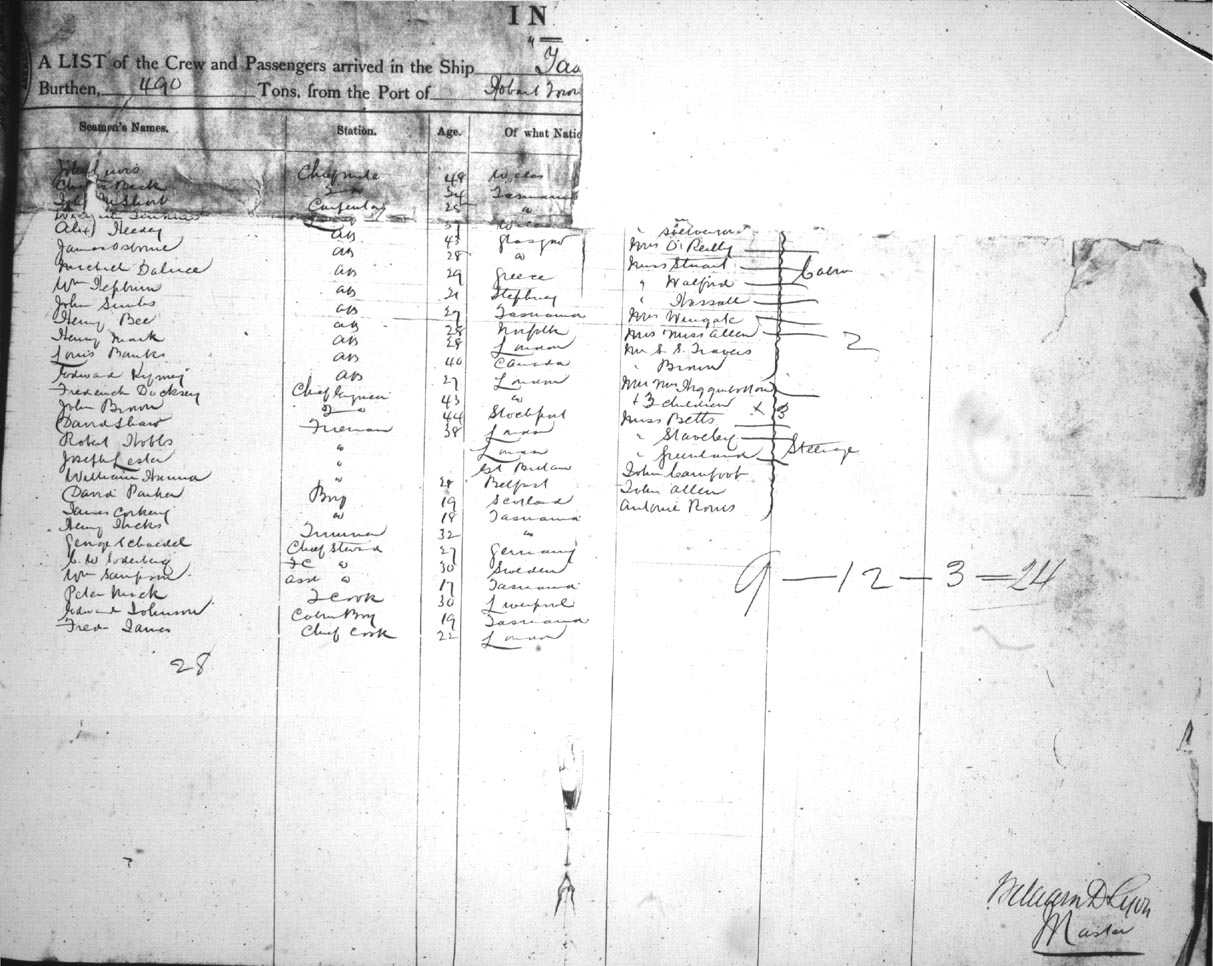 IN
A LIST of the Crew and Passengers arrived in the Ship Tas
Burthen, 490 Tons, from the Port of Hobart Town
Seamen's Names. Station. Age. Of what Natio
John Lewis Chief mate 48 Wales
Charles Beck 2 " 34 Tasmania
John Short Carpenter 25 "
Alex Heeley AB 43 Glasgow
James Osborne AB 28 "
Michel AB 29 Greece
Wm Hepburn AB 21 Stepney
John Simbs AB 27 Tasmania
Henry Bee AB 28 Norfolk
Henry Mark AB 28 London
Louis Banks AB 40 Canada
Edward AB 27 London
Frederick Docksey Chief Engineer 43 "
John Brown 2 " 44 Stockport
David Shaw Fireman 38 London
Robert Hobbs " London
Joseph Lester " Gt Britain
William Hanna " Belfast
David Parker Boy 19 Scotland
James Corkery " 18 Tasmania
Henry Hicks Trimmer 32 "
George Schaedel Chief Steward 27 Germany
C. W. Soderberg " 30 Sweden
Wm Sampson Asst " 17 Tasmania
Peter Mick 2 Cook 30 Liverpool
Edward Johnson Cabin Boy 19 Tasmania
Fred James Chief Cook 22 London
28
Mrs O'Reilly
Miss Stuart
" Walford Cabin
" Hassall
Mrs Wingate
Mrs Miss Allen 2
Mr S. S. Travers
" Brown
Mr Mrs Higginbottom
+ 3 children × 3
Miss Betts
" Staveley
" Greenland Steerage
John
John Allen
Antonie
9 — 12 — 3 = 24
William D Lyon
Master